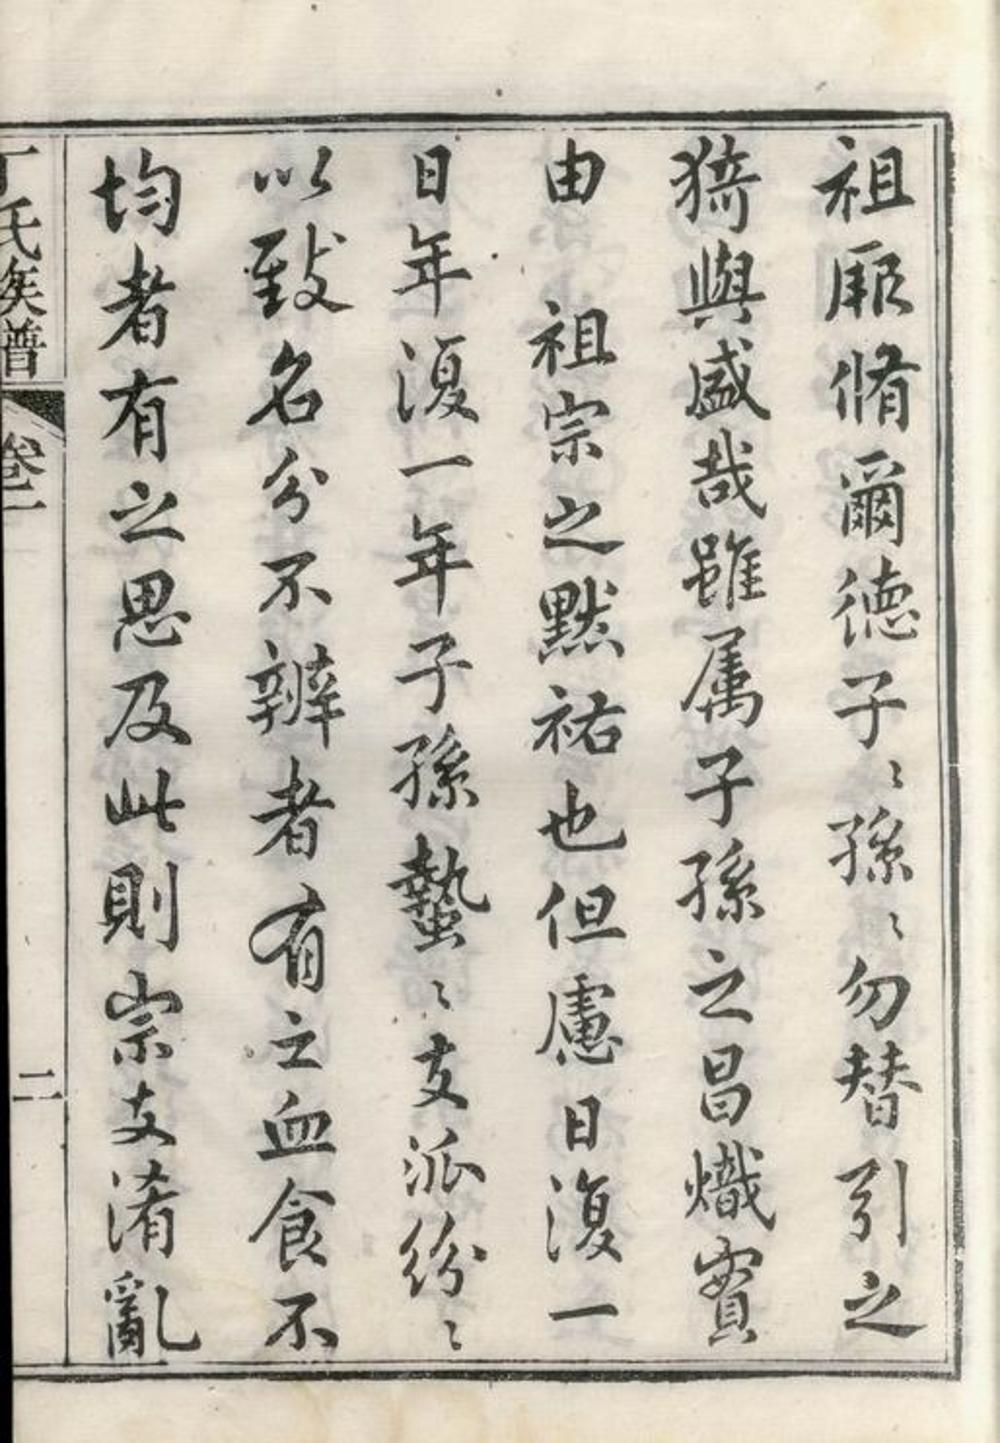 祖厥脩爾德子〻孫〻勿替引之
猗與盛哉雖属子孫之昌熾實
由 祖宗之黙祐也但慮日復一
日年復一年子孫蟄〻支派紛〻
以致名分不辨者有之血食不
均者有之思及此則宗支淆亂
丁氏族譜 卷二 二